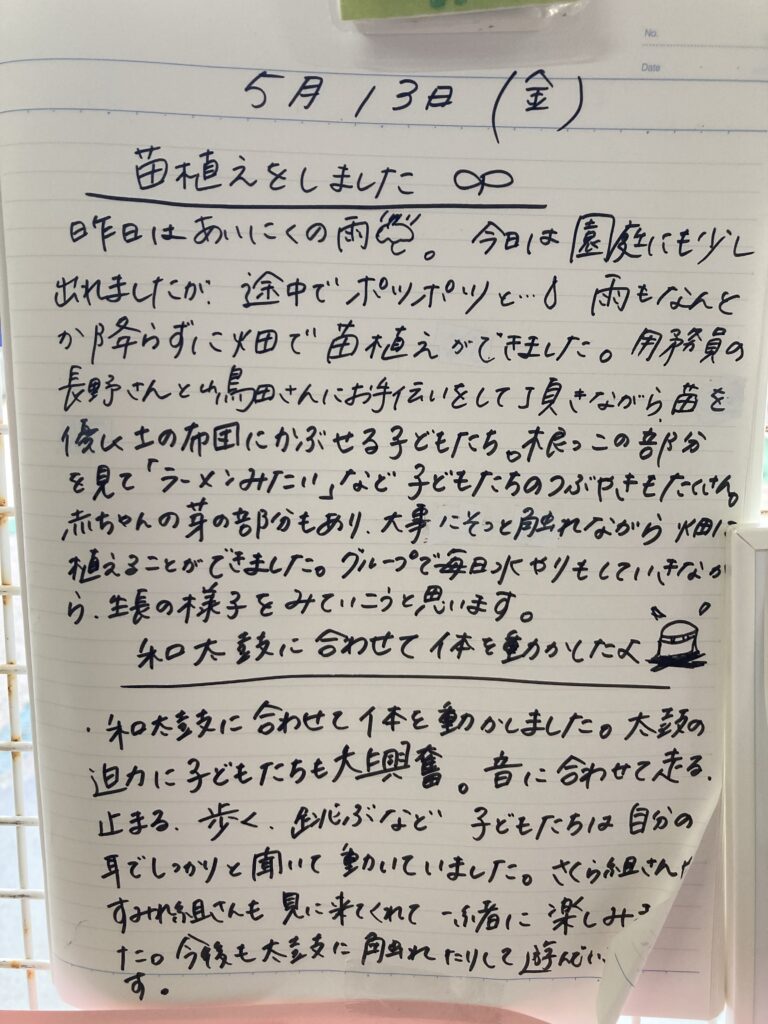 No.
Date
5月13日(金)
苗植えをしました
昨日はあいにくの雨。今日は園庭にも少し
出れましたが、途中でポツポツと…雨もなんと
か降らずに畑で苗植えができました。用務員の
長野さんと嶋田さんにお手伝いをして頂きながら苗を
優しく土の布団にかぶせる子どもたち。根っこの部分
を見て「ラーメンみたい」など子どもたちのつぶやきもたくさん。
赤ちゃんの芽の部分もあり、大事にそっと触れながら畑に
植えることができました。グループで毎日水やりもしていきなが
ら、生長の様子をみていこうと思います。
和太鼓に合わせて体を動かしたよ
・和太鼓に合わせて体を動かしました。太鼓の
迫力に子どもたちも大興奮。音に合わせて走る、
止まる、歩く、跳ぶなど子どもたちは自分の
耳でしっかりと聞いて動いていました。さくら組さんや
すみれ組さんも見に来てくれて一緒に楽しみ
た。今後も太鼓に触れたりして遊んでい
す。